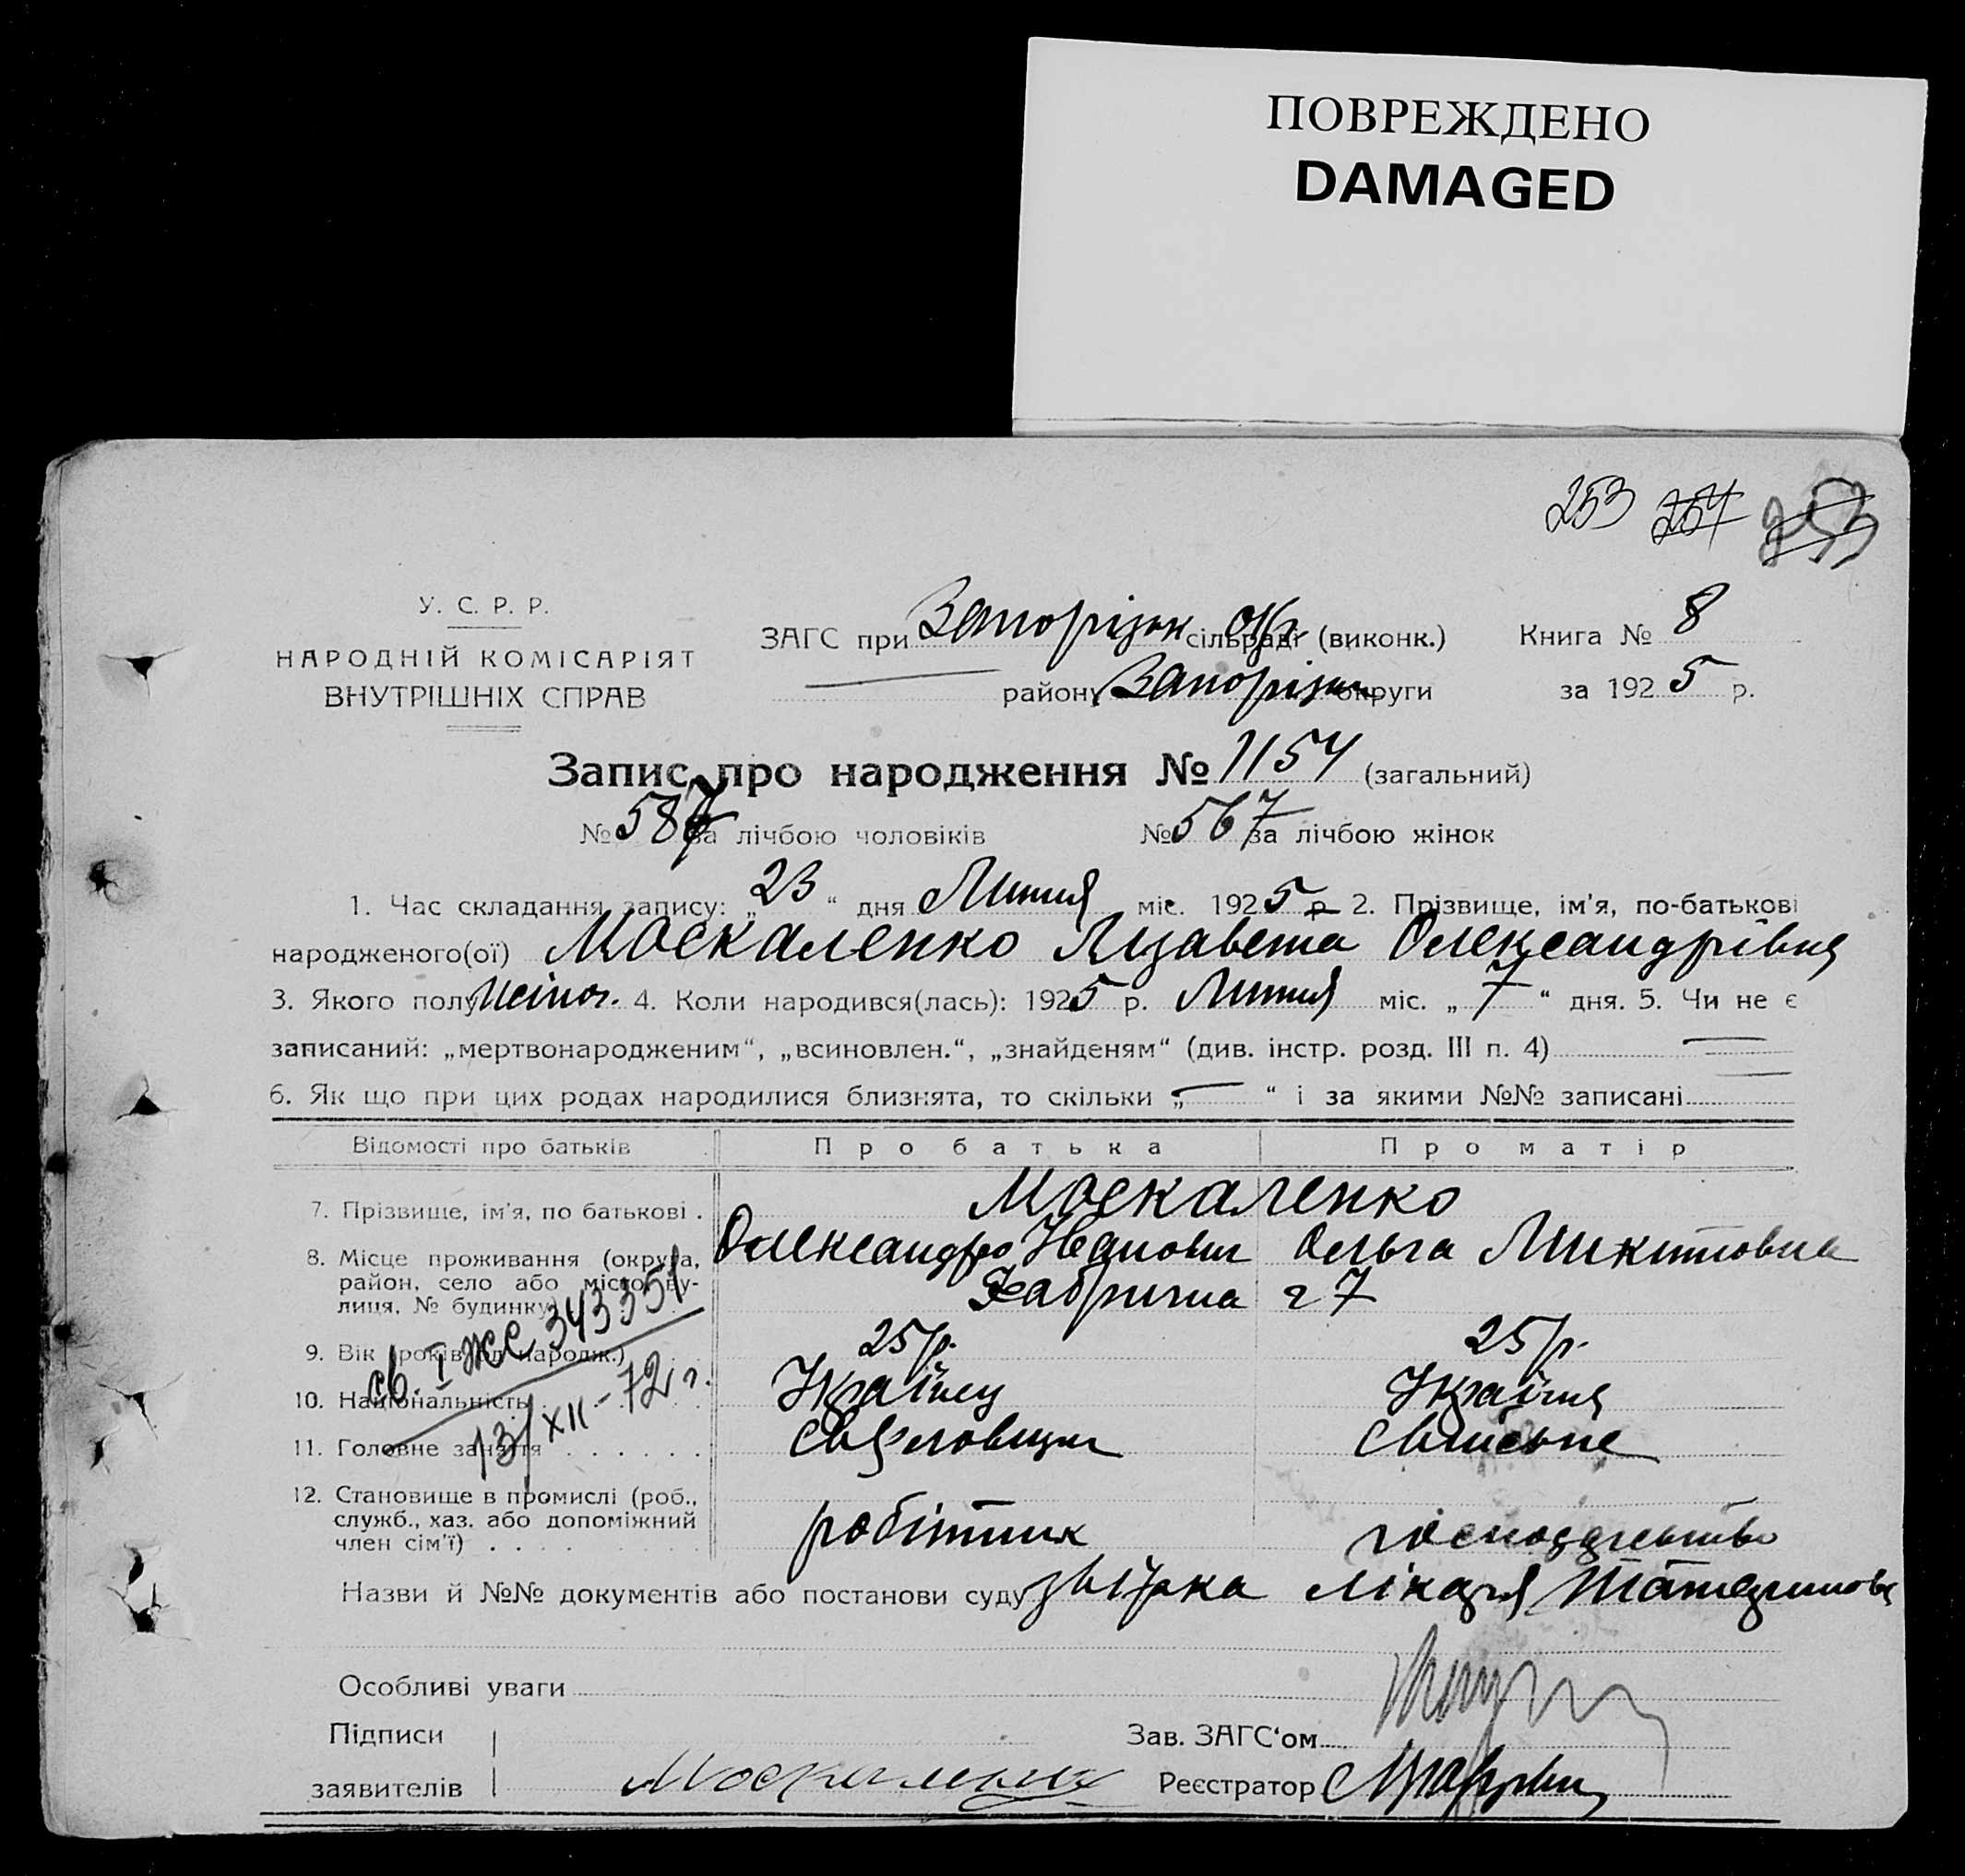 ПОВРЕЖДЕНО
DAMAGED
253 254 253
У. С. Р. Р.
НАРОДНІЙ КОМІСАРІЯТ
ВНУТРІШНІХ СПРАВ
ЗАГС при Запорізьк Окр. сільраді (виконк.) Книга № 8
району Запорізьк округи за 1925 р.
Запис про народження № 1154 (загальний)
№ 587 за лічбою чоловіків № 567 за лічбою жінок
1. Час складання запису: „23“ дня Липня міс. 1925 р. 2. Прізвище, ім'я, по-батькові
народженого(ої) Москаленко Лизавета Олександрівня
3. Якого полу жіноч. 4. Коли народився(лась): 1925 р. Липня міс. „7“ дня. 5. Чи не є
записаний: „мертвонародженим“, „всиновлен.“, „знайденям“ (див. інстр. розд. III п. 4)
6. Як що при цих родах народилися близнята, то скільки „—“ і за якими №№ записані
Відомості про батьків Про батька Про матір
7. Прізвище, ім'я, по батькові . Москаленко
Олександро Иванович Ольга Микитовна
8. Місце проживання (округа,
район, село або місто, ву-
лиця, № будинку) Фабрична 27
9. Вік (років од народж.) 25 р. 25 р.
10. Національність Українец Україня
11. Головне заняття Свійське
12. Становище в промислі (роб.,
служб., хаз. або допоміжний
член сім'ї) робітник господарство
св. I ЖС 343351
13/XII-72 г.
Назви й №№ документів або постанови суду звістка лікаря
Особливі уваги
Підписи
заявителів Москаленко
Зав. ЗАГС'ом
Реєстратор